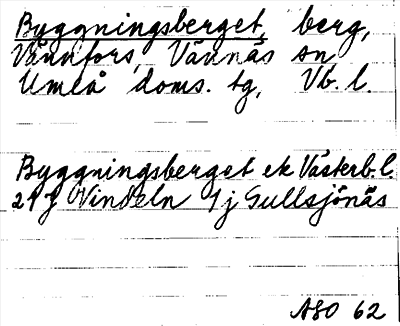 Byggningsberget, berg,
Vännfors, Vännäs sn
Umeå doms. tg, Vb. l.
Byggningsberget ek Västerb.l
21 J Vindeln 1 j Gullsjönäs
ASO 62